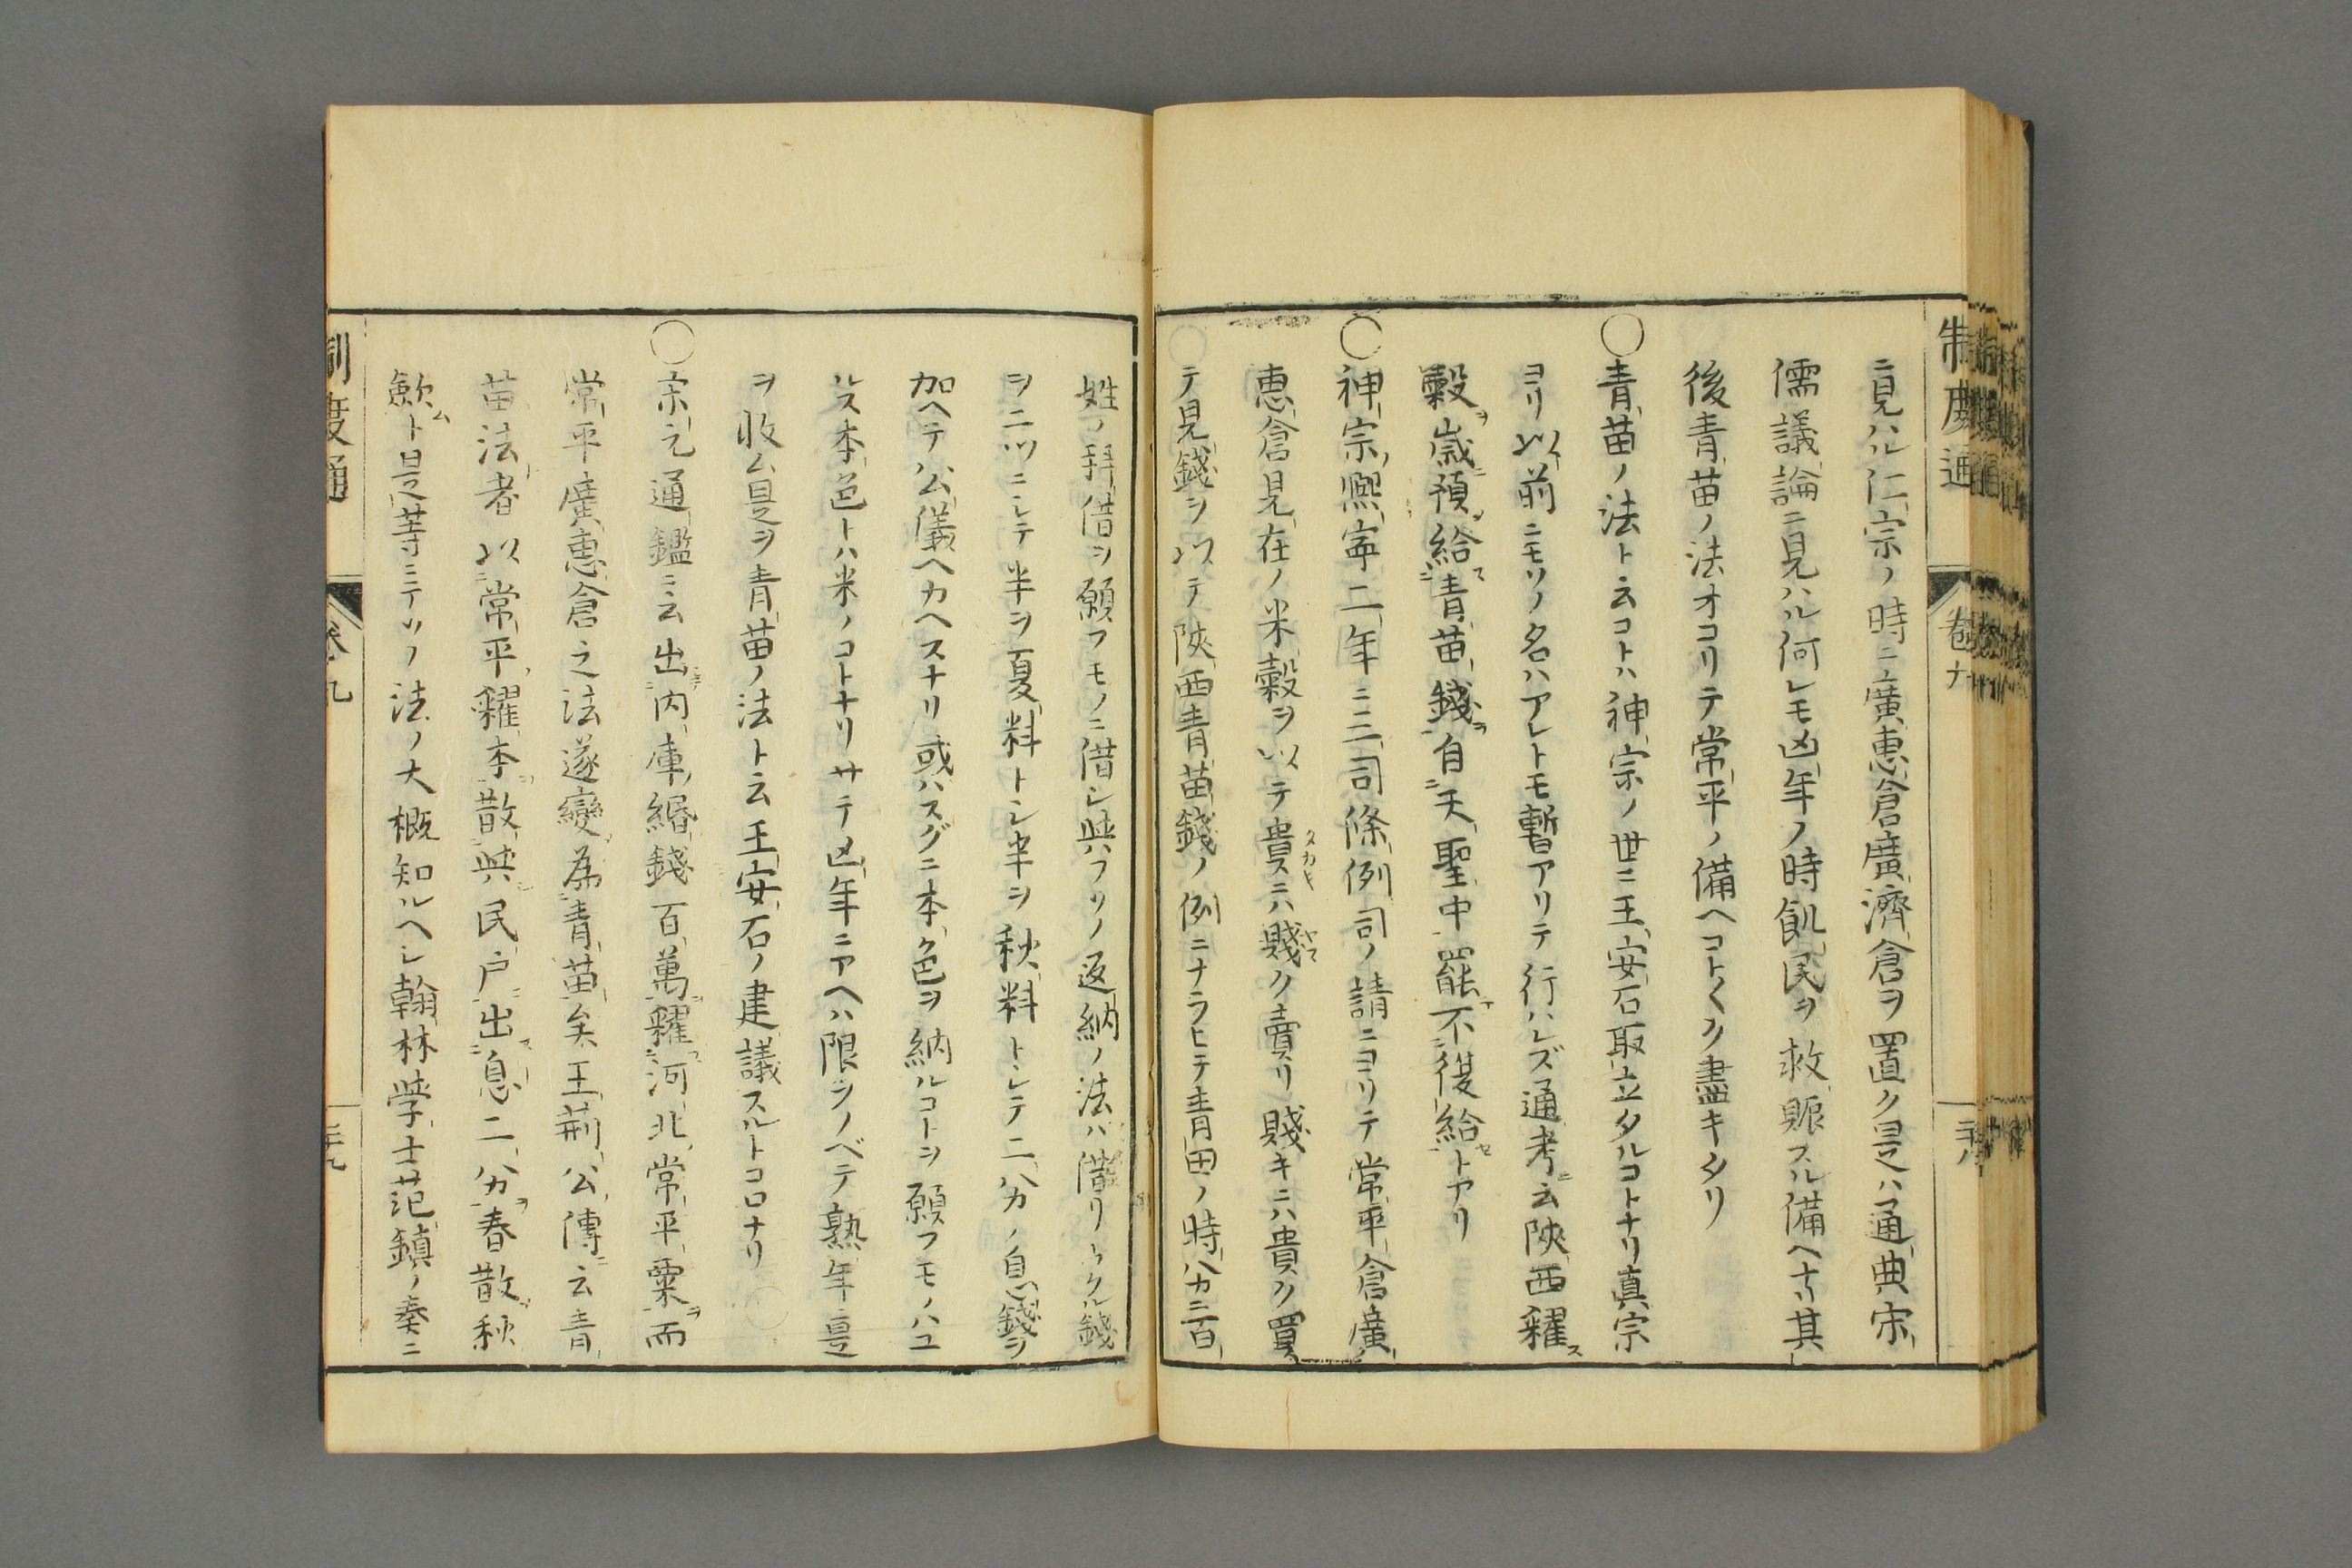 ニ見ハル仁宗ノ時ニ廣惠倉廣濟倉ヲ置ク是ハ通典宋
儒議論ニ見ハル何レモ凶年ノ時飢民ヲ救賑スル備ヘナリ其
後青苗ノ法オコリテ常平ノ備ヘコトくク盡キタリ
○青苗ノ法ト云コトハ神宗ノ世ニ王安石取立タルコトナリ真宗
ヨリ以前ニモソノ名ハアレトモ暫アリテ行ハレズ通考ニ云陝西糴
穀歳預給青苗錢自天聖中罷不復給トアリ
○神宗熙寧二年ニ三司條例司ノ請ニヨリテ常平倉廣
惠倉見在ノ米穀ヲ以テ貴スニハ賤ク賣リ賤キニハ貴ク買
テ見錢ヲ以テ陝西青苗錢ノ例ニナラヒテ青田ノ時ハカニ百
姓ノ拜借ヲ願フモノニ借シ與フソノ返納ノ法ハ借リウクル錢
ヲ二ツニシテ半ヲ夏料トシ半ヲ秋料トシテ二分ノ息錢ヲ
加ヘテ公儀ヘカヘスナリ或ハスグニ本色ヲ納ルコトヲ願フモノハユ
ルス本色トハ米ノコトナリサテ凶年ニアヘハ限ヲノベテ熟年是
ヲ收ム是ヲ青苗ノ法ト云王安石ノ建議スルトコロナリ
○宋元通鑑ニ云出内庫緡錢百萬糴河北常平粟而
常平廣惠倉之法遂變為青苗矣王荊公傳云青
苗法者以常平糴本散與民戸出息二分春散秋
歛ト是等ニテソノ法ノ大概知ルヘシ翰林學士范鎮ノ奏ニ
制度通
卷九